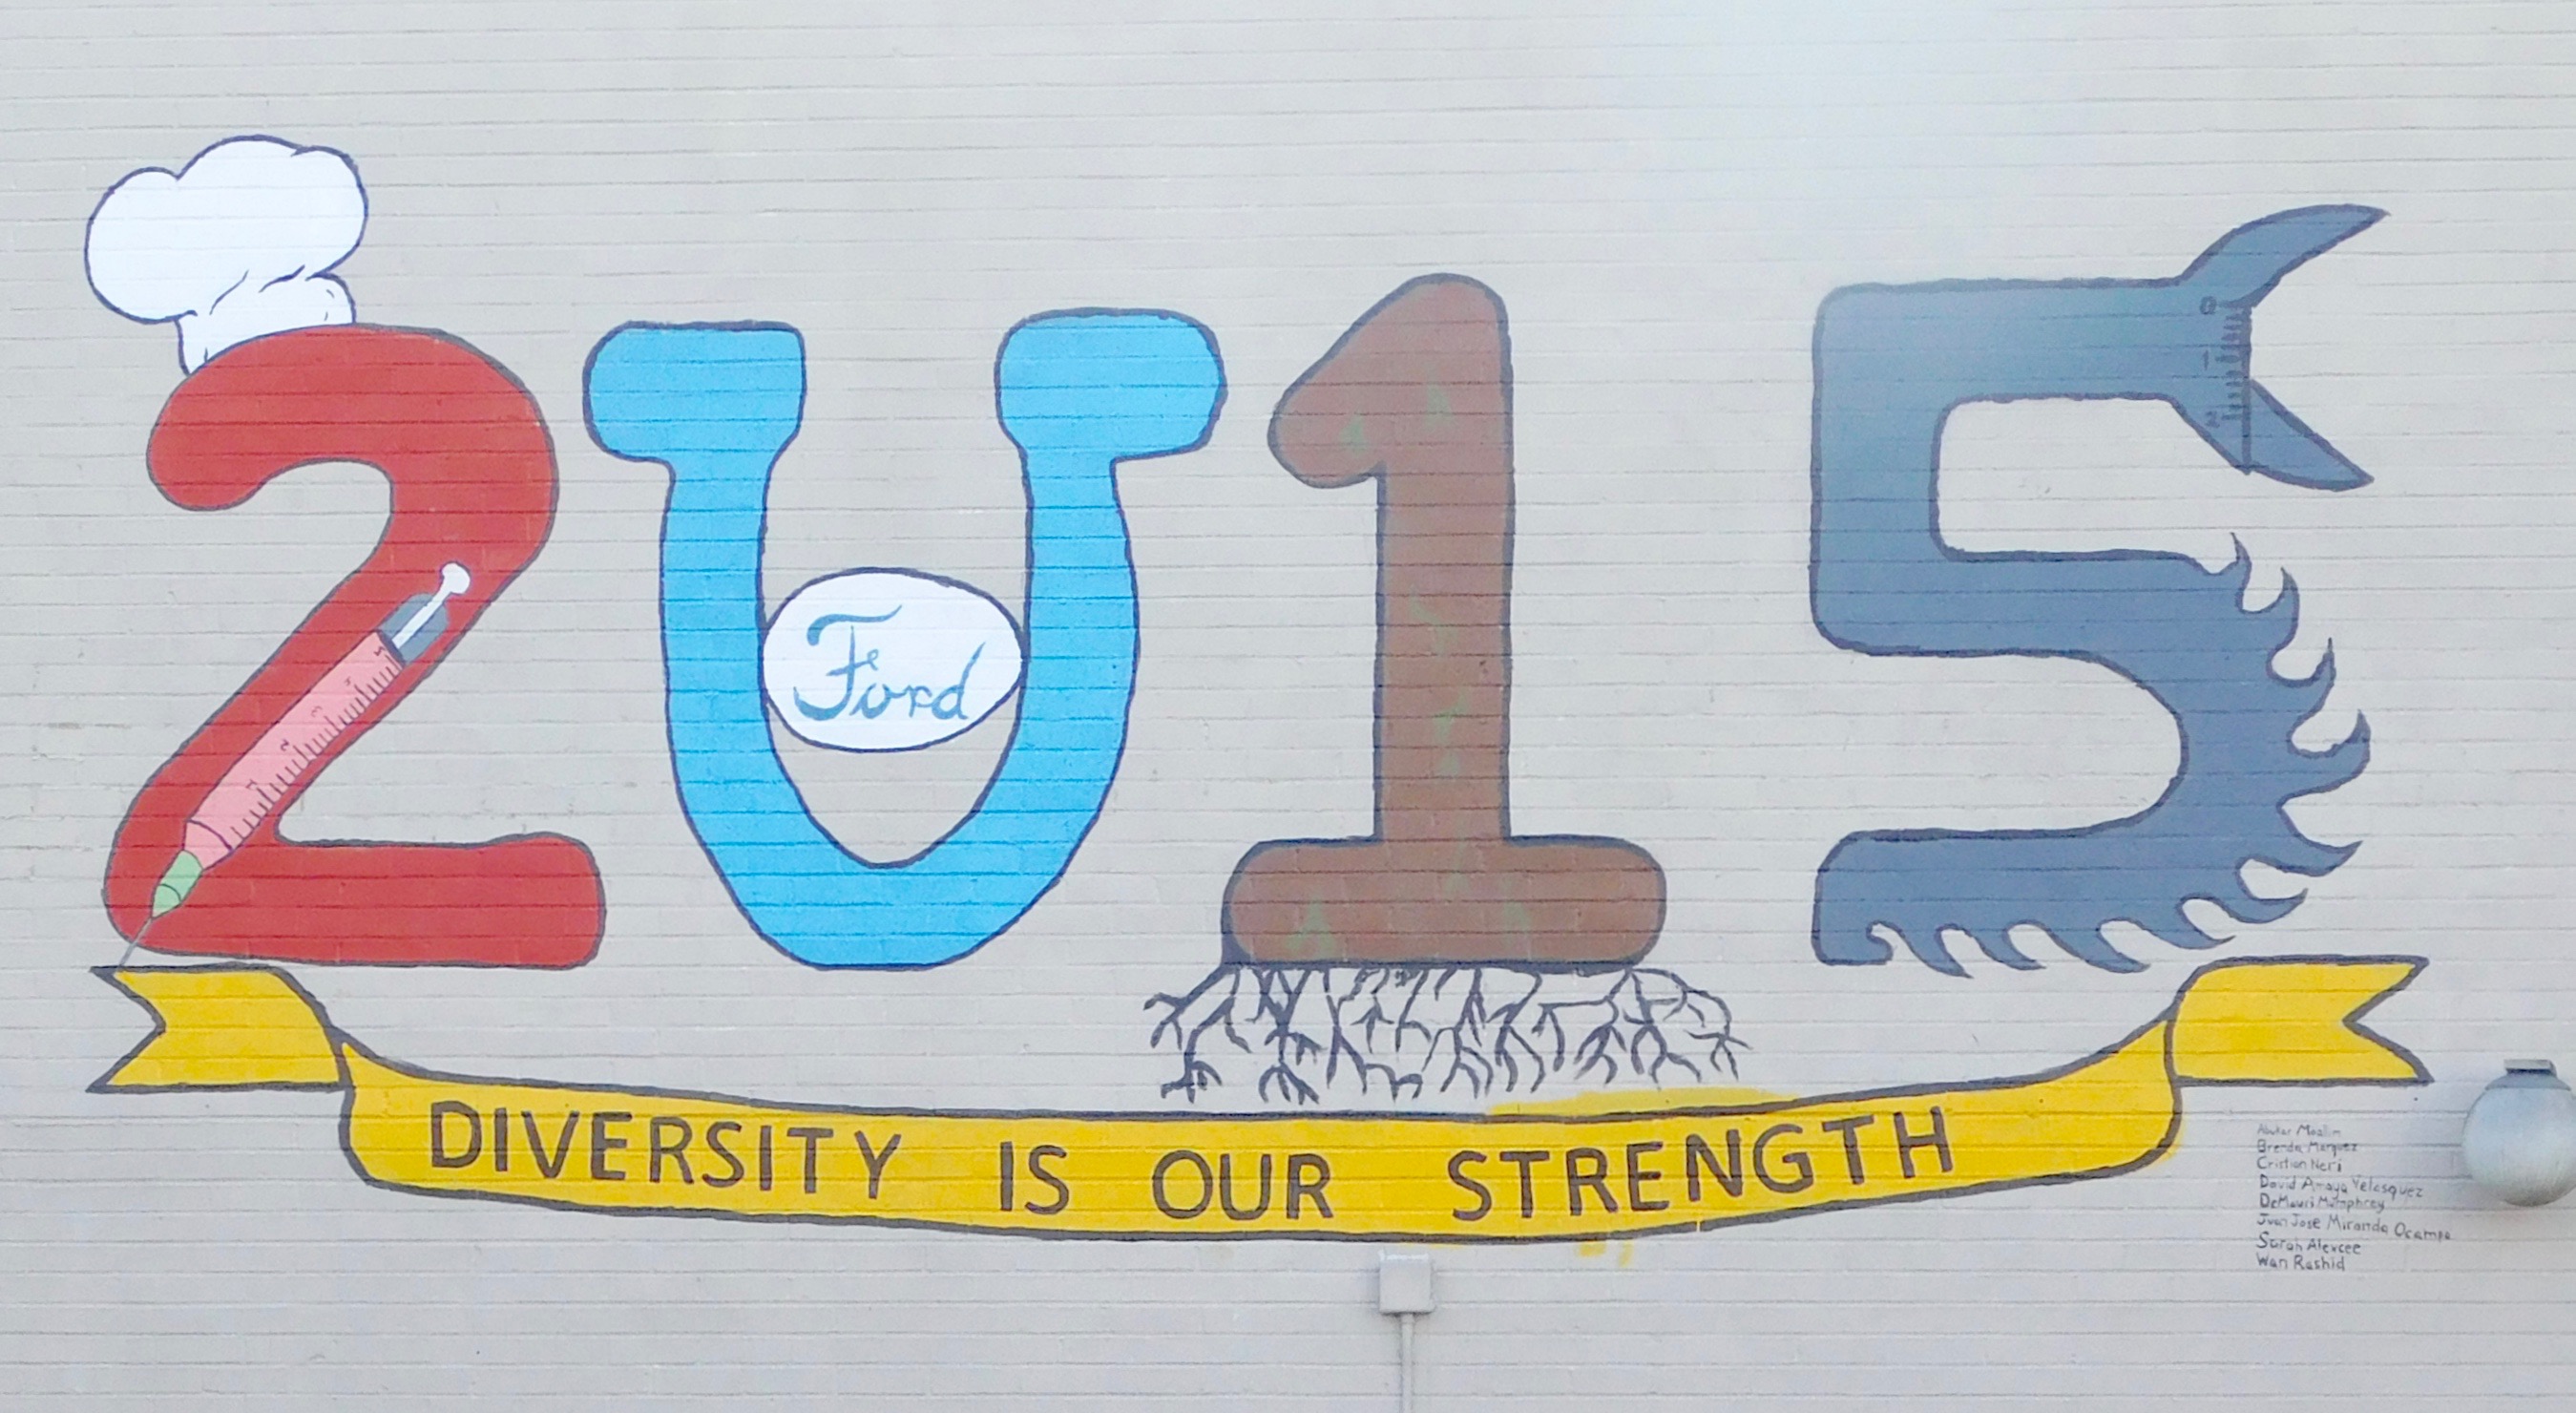 2U15
Ford
0
1
2
5
4
3
2
1
DIVERSITY IS OUR STRENGTH
Abukar Moalim
Brenda Marquez
Cristian Neri
David Amaya Velasquez
DeMauri Mumphrey
Juan Jose Miranda Ocampo
Sarah Alexcee
Wan Rashid